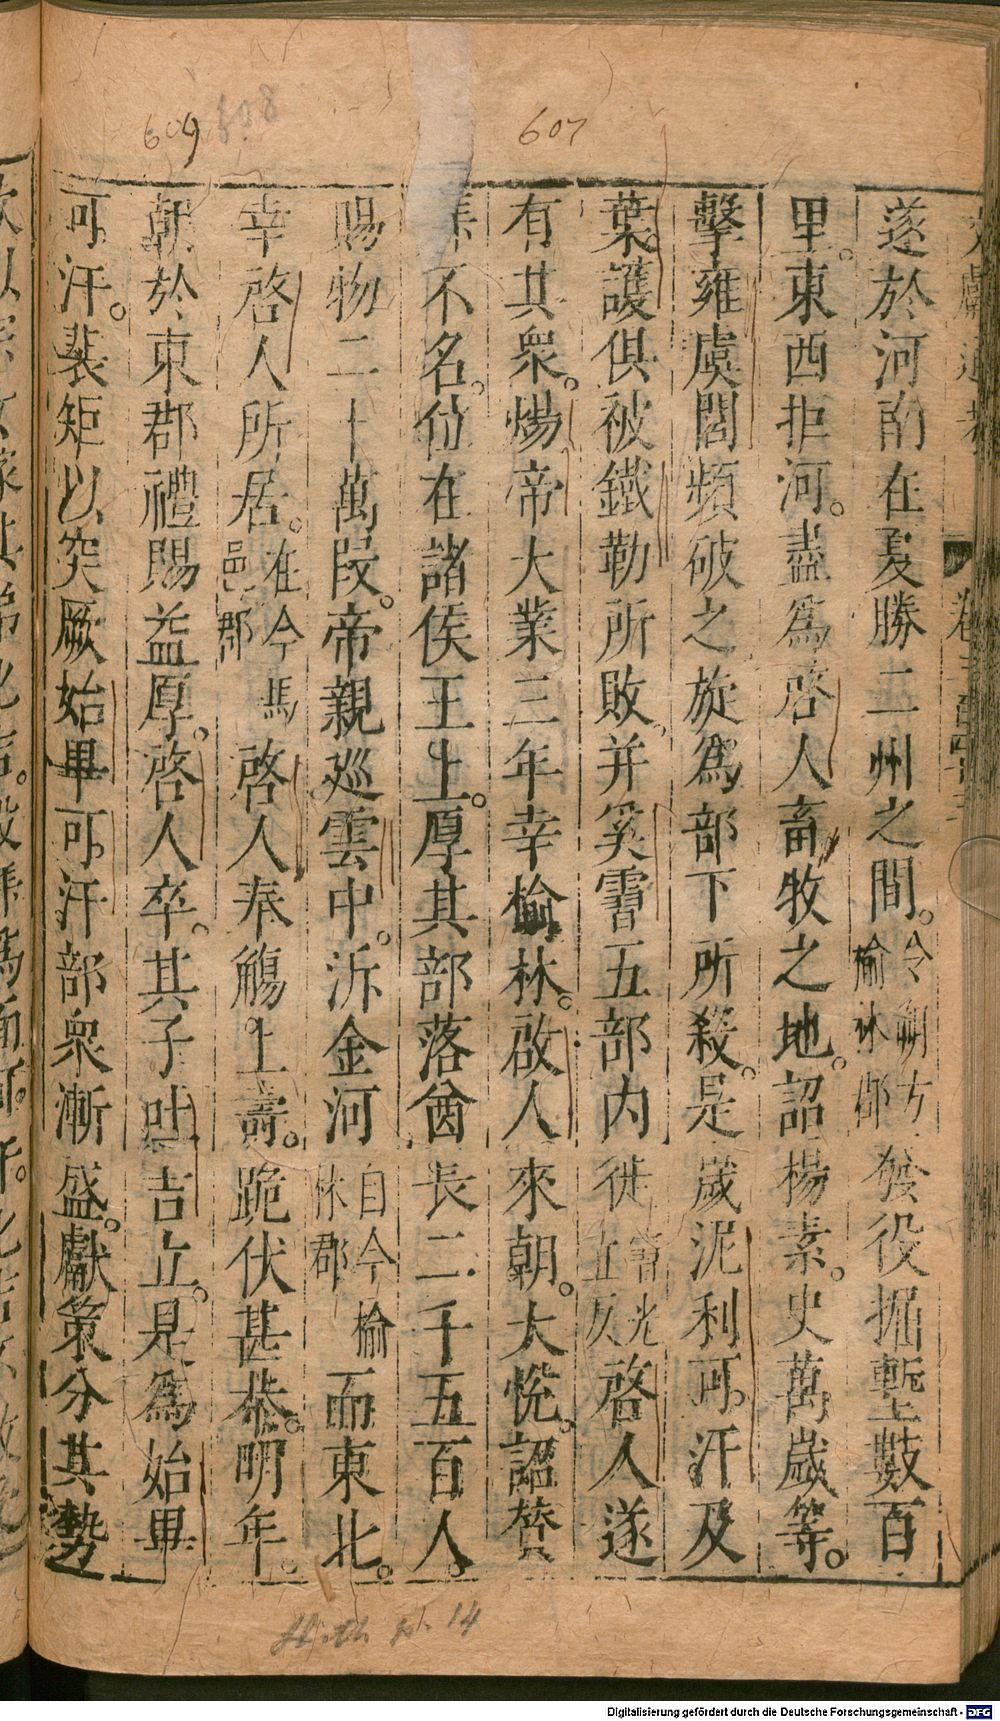 607
608
609
遂於河南在夏勝二州之間。今朔方榆林郡發役掘塹數百
里。東西拒河。盡為啓人畜牧之地。詔楊素。史萬歲等。
擊雍虞閭頻破之旋為部下所殺。是歲泥利可汗及
葉護俱被鐵勒所敗。并奚霫五部內徙霫先立反啓人遂
有其衆。煬帝大業三年幸榆林。啟人來朝。大悅。詔贊
拜不名。位在諸侯王上。厚其部落酋長二千五百人。
賜物二十萬段。帝親巡雲中。泝金河自今榆林郡而東北。
幸啓人所居。在今馬邑郡啓人奉觴上壽。跪伏甚恭。明年。
朝於東郡禮賜益厚。啓人卒。其子吐吉立。是為始畢
可汗。裴矩以突厥始畢可汗部衆漸盛。獻策分其勢
Digitalisierung gefördert durch die Deutsche Forschungsgemeinschaft - DFG